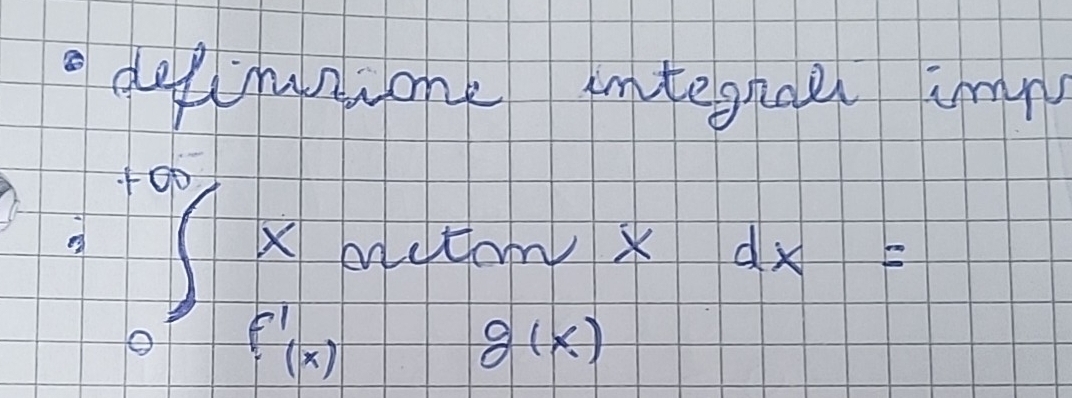 • definizione integrali impr
+∞
: ∫ x arctan x dx =
0 f'(x) g(x)